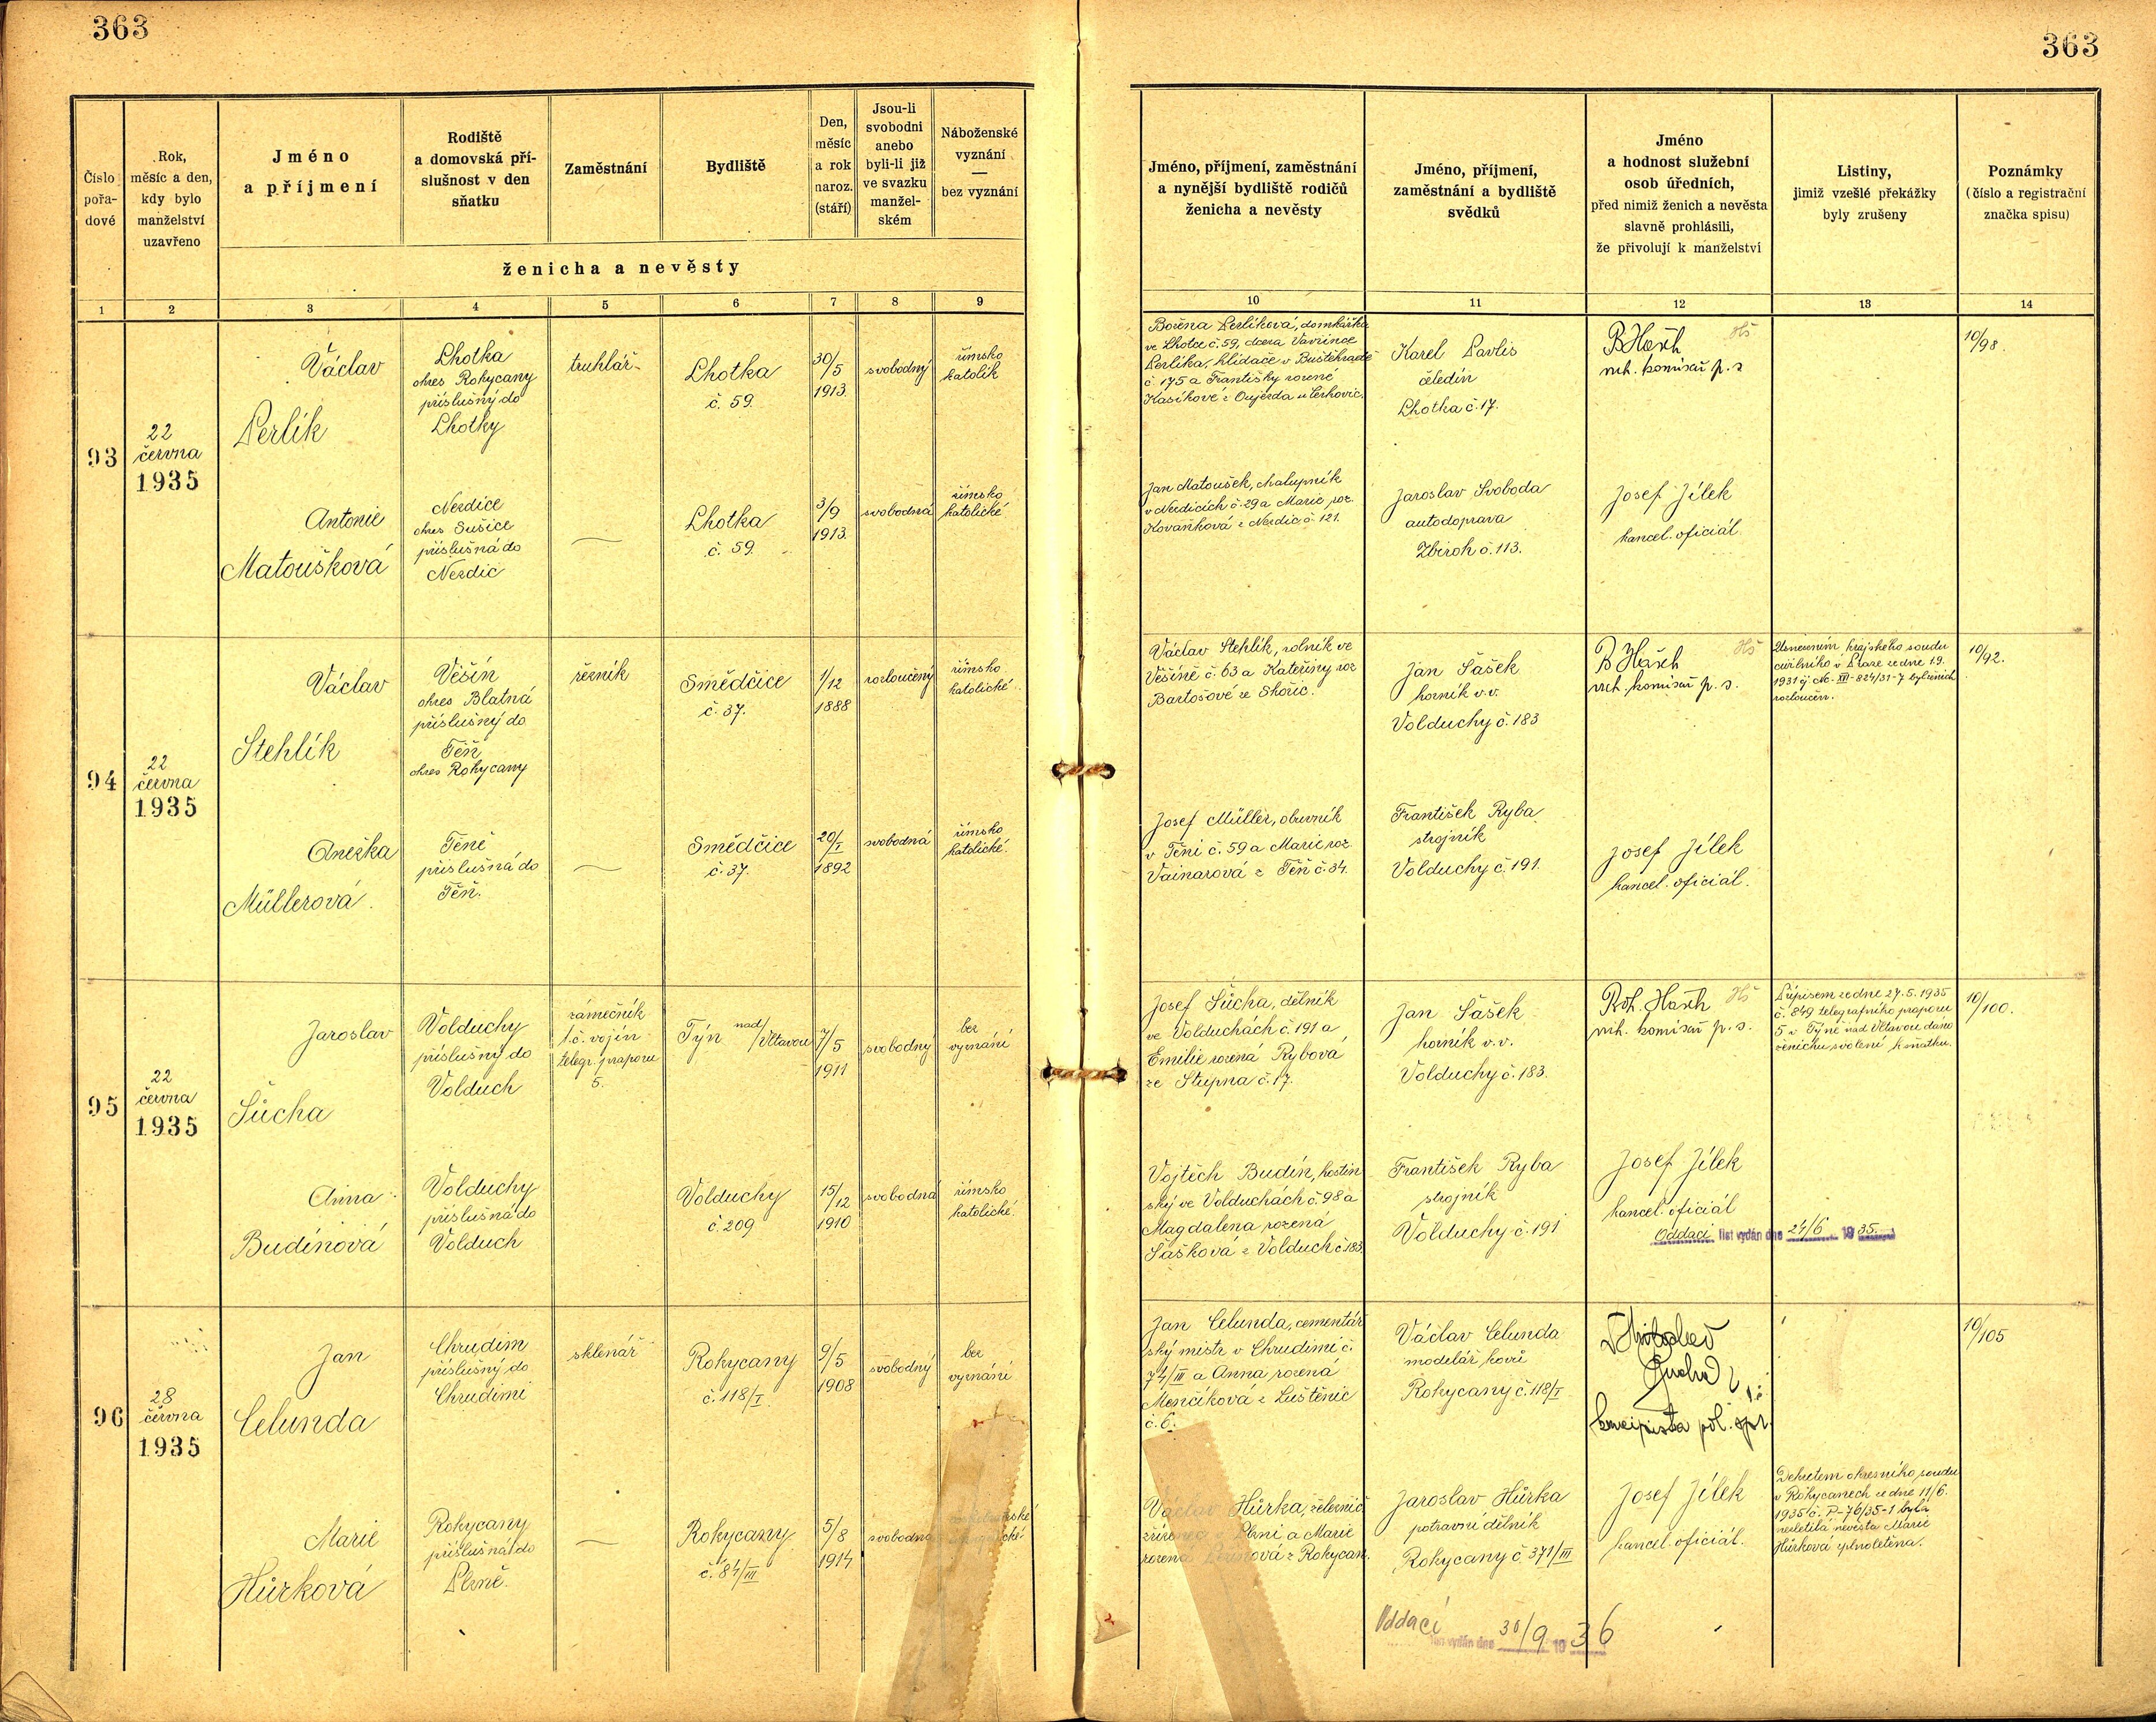 363
363
Číslo
pořa-
dové
Rok,
měsíc a den,
kdy bylo
manželství
uzavřeno
Jméno
a příjmení
Rodiště
a domovská pří-
slušnost v den
sňatku
Zaměstnání
Bydliště
Den,
měsíc
a rok
naroz.
(stáří)
Jsou-li
svobodni
anebo
byli-li již
ve svazku
manžel-
ském
Náboženské
vyznání
—
bez vyznání
ženicha a nevěsty
Jméno, příjmení, zaměstnání
a nynější bydliště rodičů
ženicha a nevěsty
Jméno, příjmení,
zaměstnání a bydliště
svědků
Jméno
a hodnost služební
osob úředních,
před nimiž ženich a nevěsta
slavně prohlásili,
že přivolují k manželství
Listiny,
jimiž vzešlé překážky
byly zrušeny
Poznámky
(číslo a registrační
značka spisu)
1 2 3 4 5 6 7 8 9 10 11 12 13 14
93
22
června
1935
Václav
Perlík
Lhotka
okres Rokycany
příslušný do
Lhotky
truhlář
Lhotka
č. 59.
30/5
1913
svobodný
římsko
katolík
Božena Perlíková, domkářka
ve Lhotce č 59, dcera Vavřince
Perlíka, hlídače v Buštěhradě
č 175 a Františky rozené
Kasíkové z
Karel Pavlis
čeledín
Lhotka č. 17.
vrch. komisař p. s
10/98.
Antonie
Matoušková
Nezdice
okres Sušice
příslušná do
Nezdic
Lhotka
č. 59.
3/9
1913
svobodná
římsko
katolické
Jan Matoušek, chalupník
v Nezdicích č. 29 a Marie roz.
Kovaříková z Nezdic č. 121.
Jaroslav Svoboda
autodoprava
Zbiroh č. 113.
Josef Jílek
kancel. oficiál
94
22
června
1935
Václav
Stehlík
Věšín
okres Blatná
příslušný do
Těň
okres Rokycany
řezník
Smědčice
č. 37.
1/12
1888
rozloučený
římsko
katolické
Václav Stehlík, rolník ve
Věšíně č. 63 a Kateřiny roz
Bartošové ze Skořic.
Jan Šašek
horník v.v.
Volduchy č. 183
vrch. komisař p. s.
Usnesením krajského soudu
civilního v Praze ze dne 1.9.
1931 čj. Nc. XIII-824/31-7 byl ženich
rozloučen.
10/92.
Anežka
Müllerová
Těně
příslušná do
Těň.
Smědčice
č. 37.
20/I
1892
svobodná
římsko
katolické
Josef Müller, obuvník
v Těni č. 59 a Marie roz
Vainarová z Těň č. 34.
František Ryba
strojník
Volduchy č. 191.
Josef Jílek
kancel. oficiál.
95
22
června
1935
Jaroslav
Šůcha
Volduchy
příslušný do
Volduch
zámečník
t.č. vojín
telegr. praporu
5.
Týn nad/Vltavou
7/5
1911
svobodný
bez
vyznání
Josef Šůcha, dělník
ve Volduchách č. 191 a
Emilie rozená Rybová
ze Stupna č. 17.
Jan Šašek
horník v.v.
Volduchy č. 183.
vrch. komisař p. s.
Přípisem ze dne 27. 5. 1935
č. 849 telegrafního praporu
5 v Týně nad Vltavou dáno
ženichu svolení k sňatku.
10/100.
Anna
Budínová
Volduchy
příslušná do
Volduch
Volduchy
č. 209
15/12
1910
svobodná
římsko
katolické.
Vojtěch Budín, hostin
ský ve Volduchách č. 98 a
Magdalena rozená
Šašková z Volduch č 183.
František Ryba
strojník
Volduchy č. 191
Josef Jílek
kancel. oficiál
Oddací list vydán dne 24/6 1935
96
28
června
1935
Jan
Celunda
Chrudim
příslušný do
Chrudimi
sklenář
Rokycany
č. 118/I
9/5
1908
svobodný
bez
vyznání
Jan Celunda, cementář
ský mistr v Chrudimi č.
74/III a Anna rozená
Menčíková z Luštěnic
č. 6.
Václav Celunda
modelář kovů
Rokycany č. 118/I
10/105
Marie
Hůrková
Rokycany
příslušná do
Plzně.
Rokycany
č. 84/III
5/8
1914
svobodná
Václav Hůrka, železnič
zřízenec v Plzni a Marie
rozená z Rokycan.
Jaroslav Hůrka
potravní dělník
Rokycany č 371/III
Josef Jílek
kancel. oficiál.
Dekretem okresního soudu
v Rokycanech ze dne 11/6
1935 č. P-76/35-1 byla
nezletilá nevěsta Marie
Hůrková zplnoletěna.
Oddací list vydán dne 30/9 1936